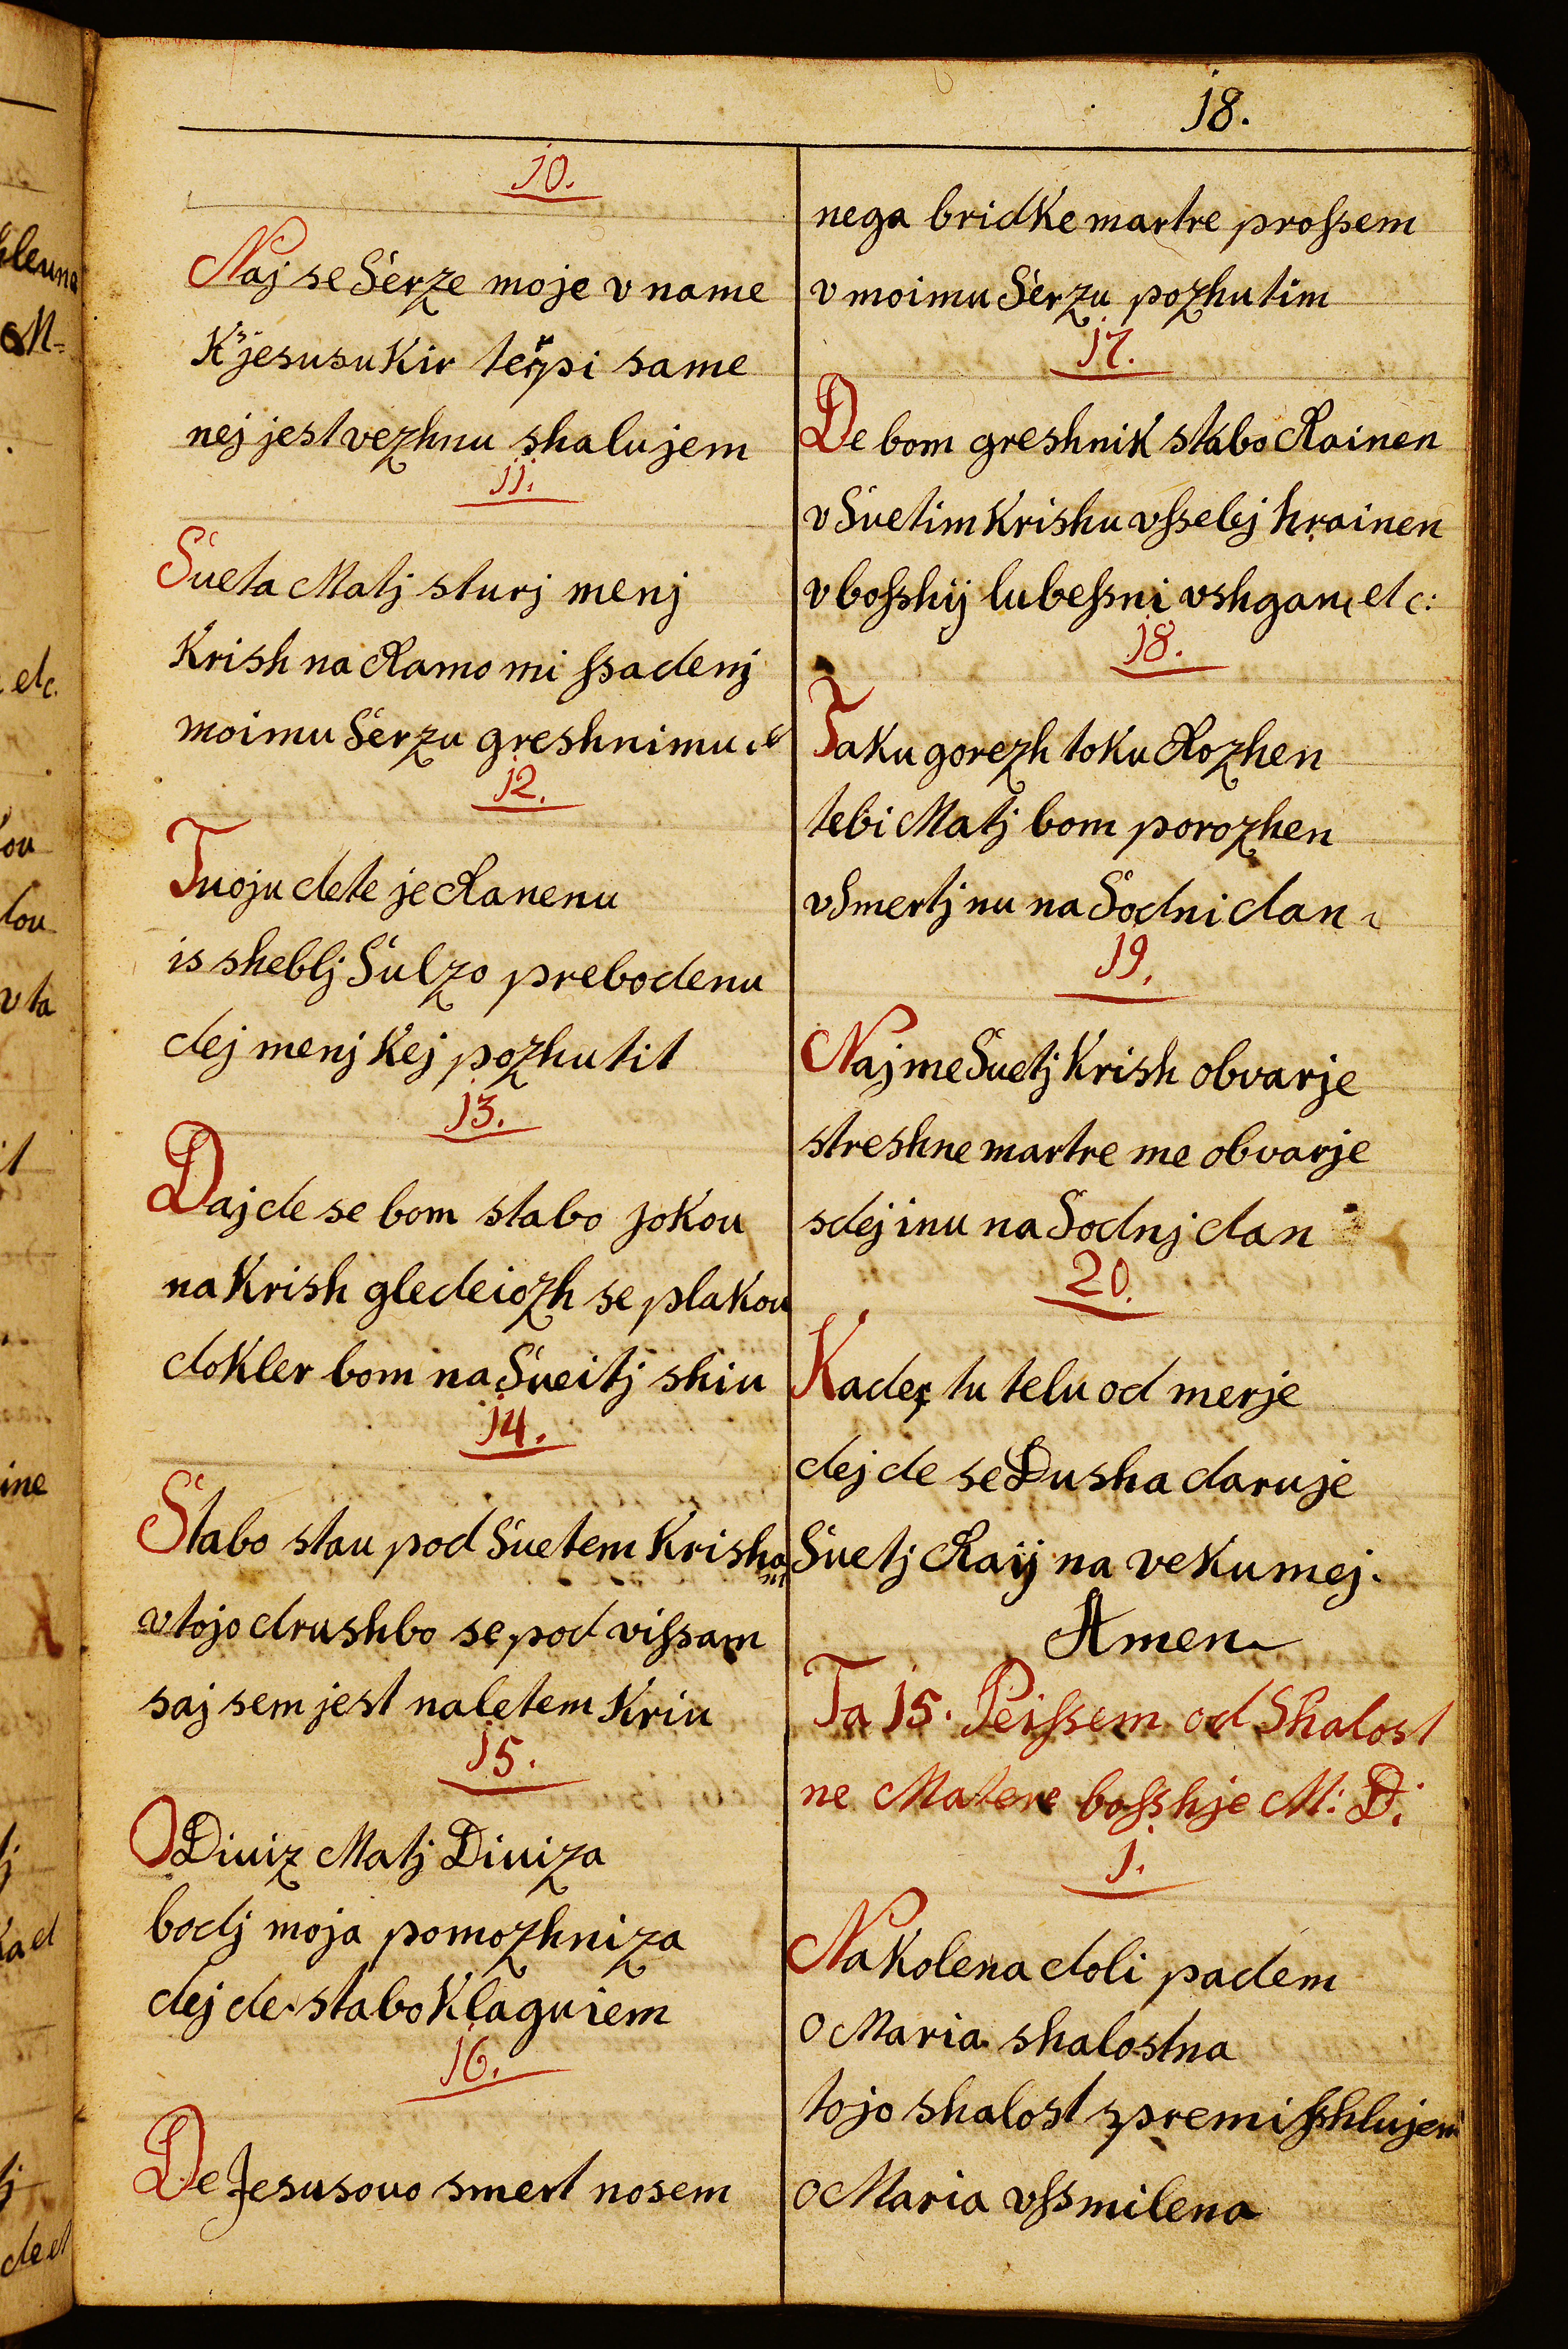 18.
10.
Naj se Serze moje v name
K'jesusu Kir terpi same
nej jest vezhnu shalujem
11.
Sueta Matj sturj menj
Krish na Ramo mi ſsadenj
moimu Serzu greshnimu
12.
Tuoju dete je Ranenu
is sheblj Sulzo prebodenu
dej menj Kej pozhutit
13.
Daj de se bom stabo jokou
na Krish gledeiozh se plakou
dokler bom na Sueitj shiu
14.
Stabo stau pod Suetem Krisham
v tojo drushbo se pod viſsam
saj sem jest na letem Kriu
15.
O Diuiz Matj Diuiza
bodj moja pomozhniza
dej de stabo Klaguiem
16.
De Jesusouo smert nosem
nega bridke martre proſsem
v moimu Serzu pozhutim
17.
De bom greshnik stabo Rainen
v Suetim Krishu vſsebj hrainen
v boſshij lubeſsni vshgan, etc:
18.
Taku gorezh toku Rozhen
tebi Matj bom porozhen
v Smertj nu na Sodni dan
19.
Naj me Suetj Krish obvarje
streshne martre me obvarje
sdej inu na Sodnj dan
20.
Kader tu telu od merje
dej de se Dusha daruje
Suetj Raij na vekumej.
Amen
Ta 15. Peiſsem od Shalost
ne Matere boſshje M: D:
1.
Na kolena doli padem
O Maria shalostna
tojo shalost spremiſshlujem
O Maria vſsmilena